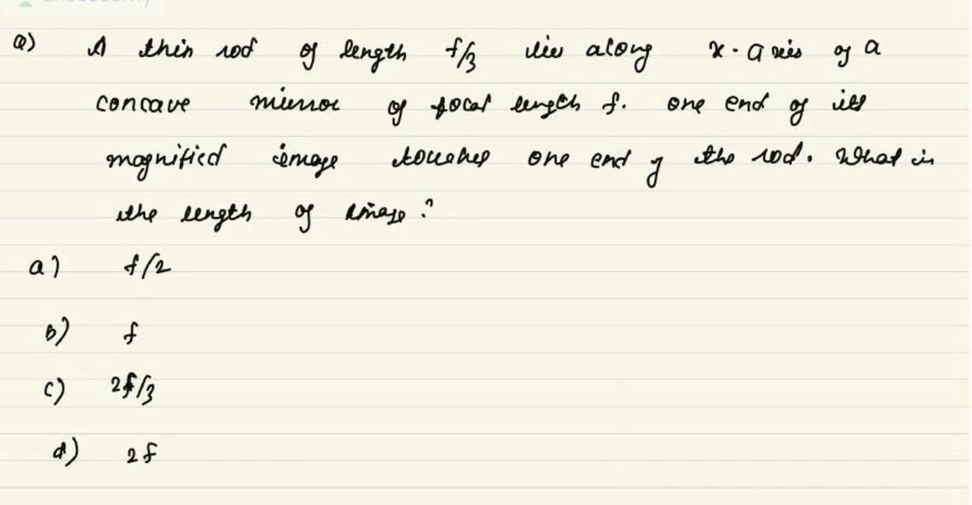 Q) A thin rod of length f/3 lies along x-axis of a
concave mirror of focal length f. one end of its
magnified image touches one end of the rod. What is
the length of image?
a) f/2
b) f
c) 2f/3
d) 2f